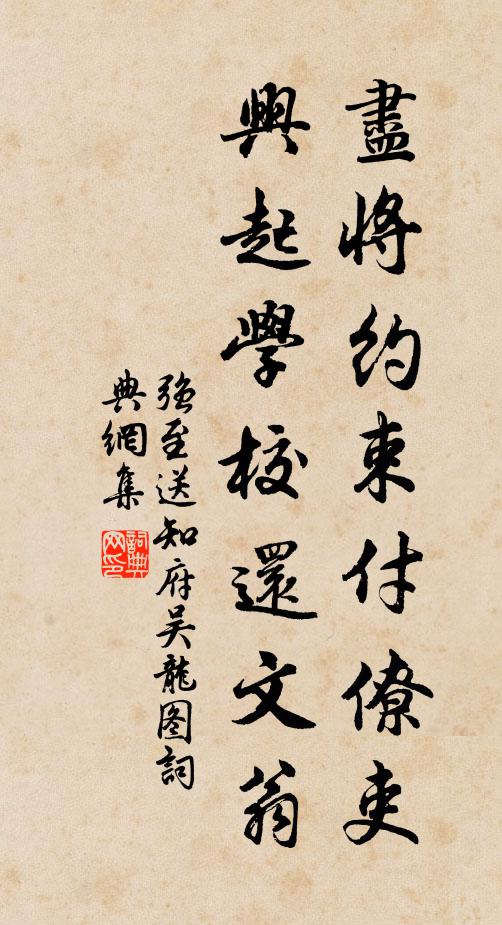 盡將約束付僚吏
興起學校還文翁
强至送知府吴龍图詞
典網集
詞典网印